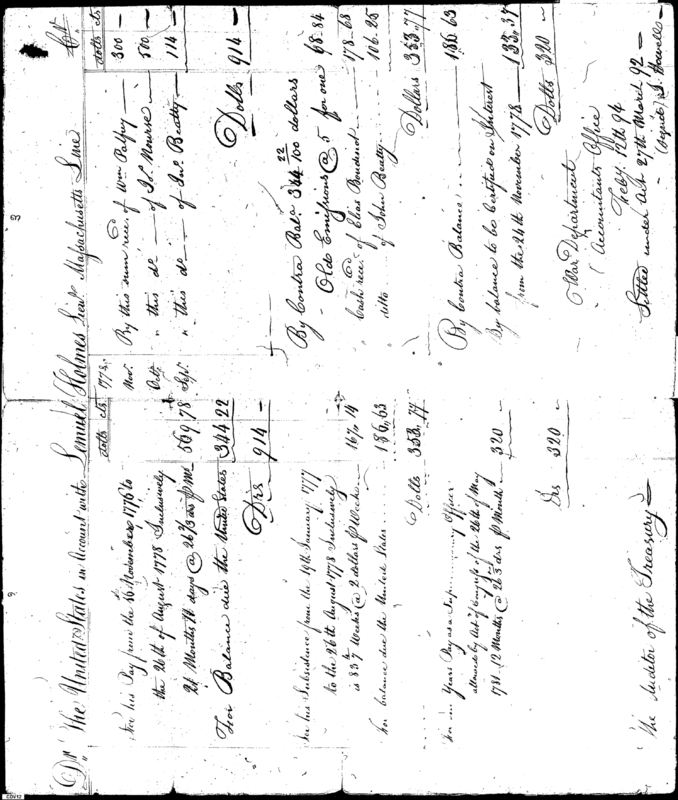 Dr The United States in Account with Lemuel Holmes Lieut. Massachusetts Line Cr
dolls cts
For his Pay from the 16 November 1776 to
the 26th of August 1778 Inclusively
21 Months days @ 26 2/3 drs 569.78
For Balance due the United States 344.22
Drs 914 -
For his Subsistence from the 19th January 1777
to the 26th August 1778 Inclusively
is 83 4/7 Weeks @ 2 dollars Week 167.14
For balance due the United States 186.63
Dolls 353.77
For Years Pay as a Officer
allowed by Act of Congress of the 26th of May
1781. 12 Months @ 26 2/3 drs Month 320
Drs 320 -
The Auditor of the Treasury
1778 dolls cts
Nov. By this sum rec'd of Wm Palfrey 300 -
Octr. " this do of Jo. Nourse 500 -
Sept. " this do of Jno. Beatty 114 -
Dolls 914 -
By Contra Bala. 344 22/100 dollars
Old Emissions @ 5 for one 68.84
" Cash rec'd of Elias Boudinot 178.68
ditto of John Beatty 106.25
Dollars 353.77
By Contra Balance 186.63
By balance to be Certified on Interest
from the 24th November 1778 133.37
Dolls 320 -
War Department
Accountants Office
Feby 12th 94
Settled under Act 27th March 92 -
(Signed) Howell